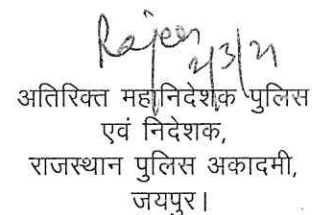 Rajeev
2/3/21
अतिरिक्त महानिदेशक पुलिस
एवं निदेशक,
राजस्थान पुलिस अकादमी,
जयपुर।